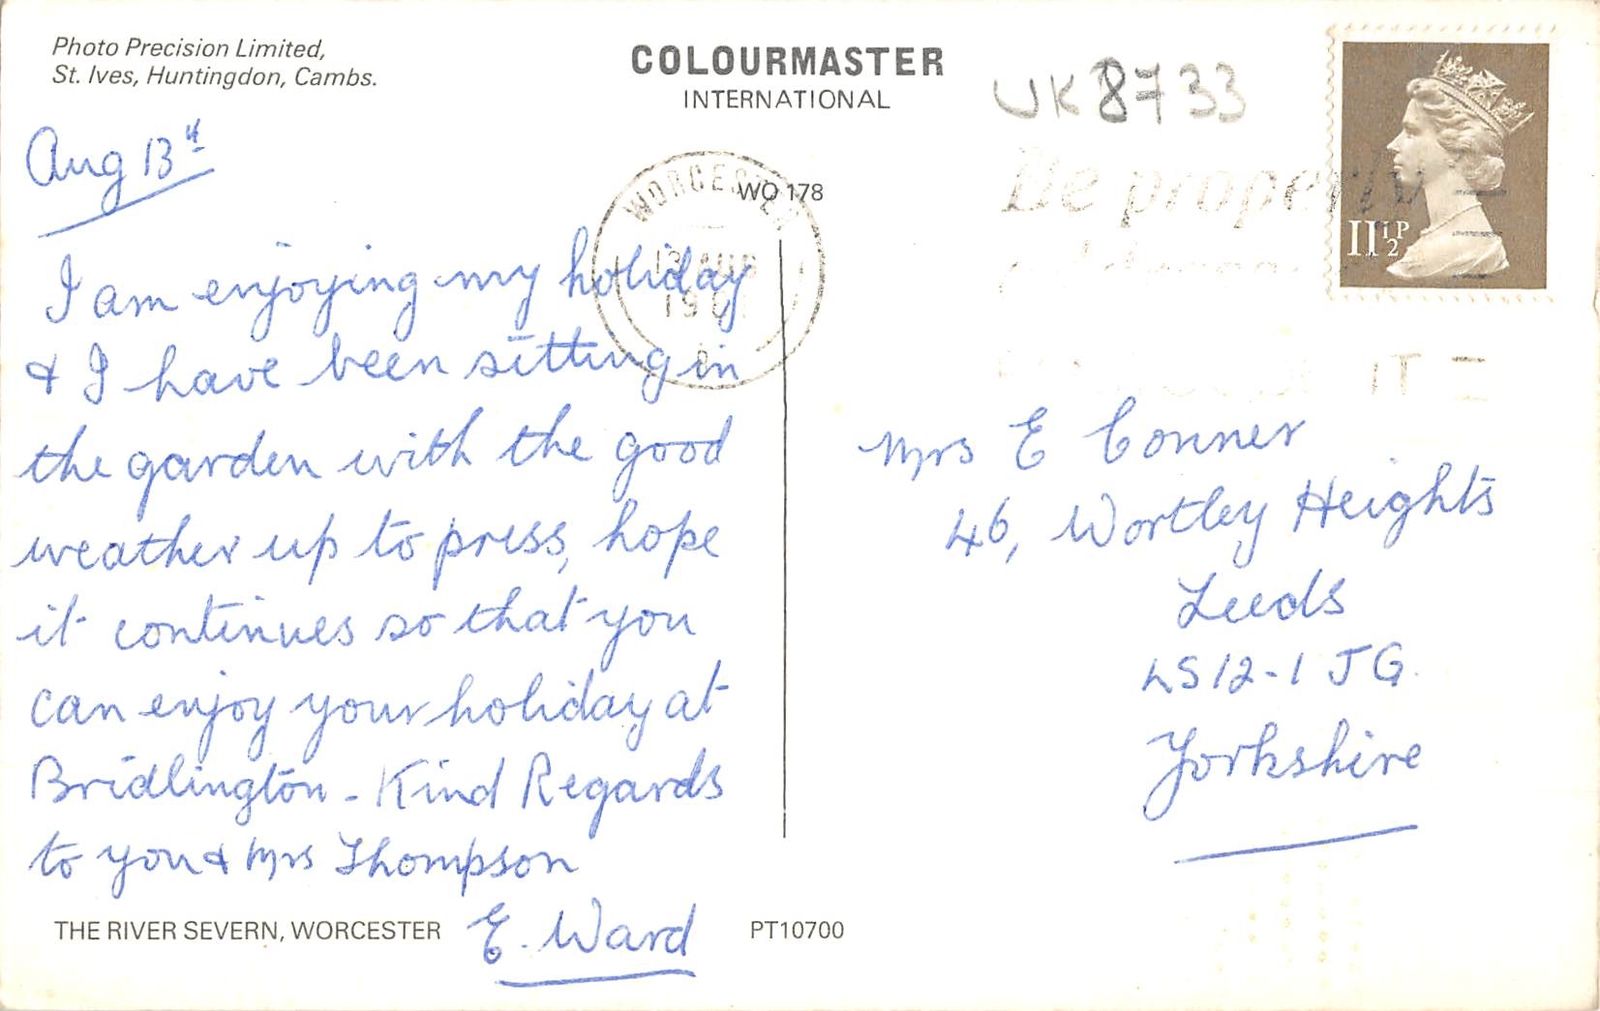 Photo Precision Limited,
St. Ives, Huntingdon, Cambs.
COLOURMASTER
INTERNATIONAL
UK 8733
WORCESTER
13 AUG
Be properly
IT
11½P
WO 178
Aug 13th
I am enjoying my holiday
& I have been sitting in
the garden with the good
weather up to press, hope
it continues so that you
can enjoy your holiday at
Bridlington - Kind Regards
to you & Mrs Thompson
E. Ward
Mrs E Conner
46, Wortley Heights
Leeds
LS12-1JG.
Yorkshire
THE RIVER SEVERN, WORCESTER
PT10700